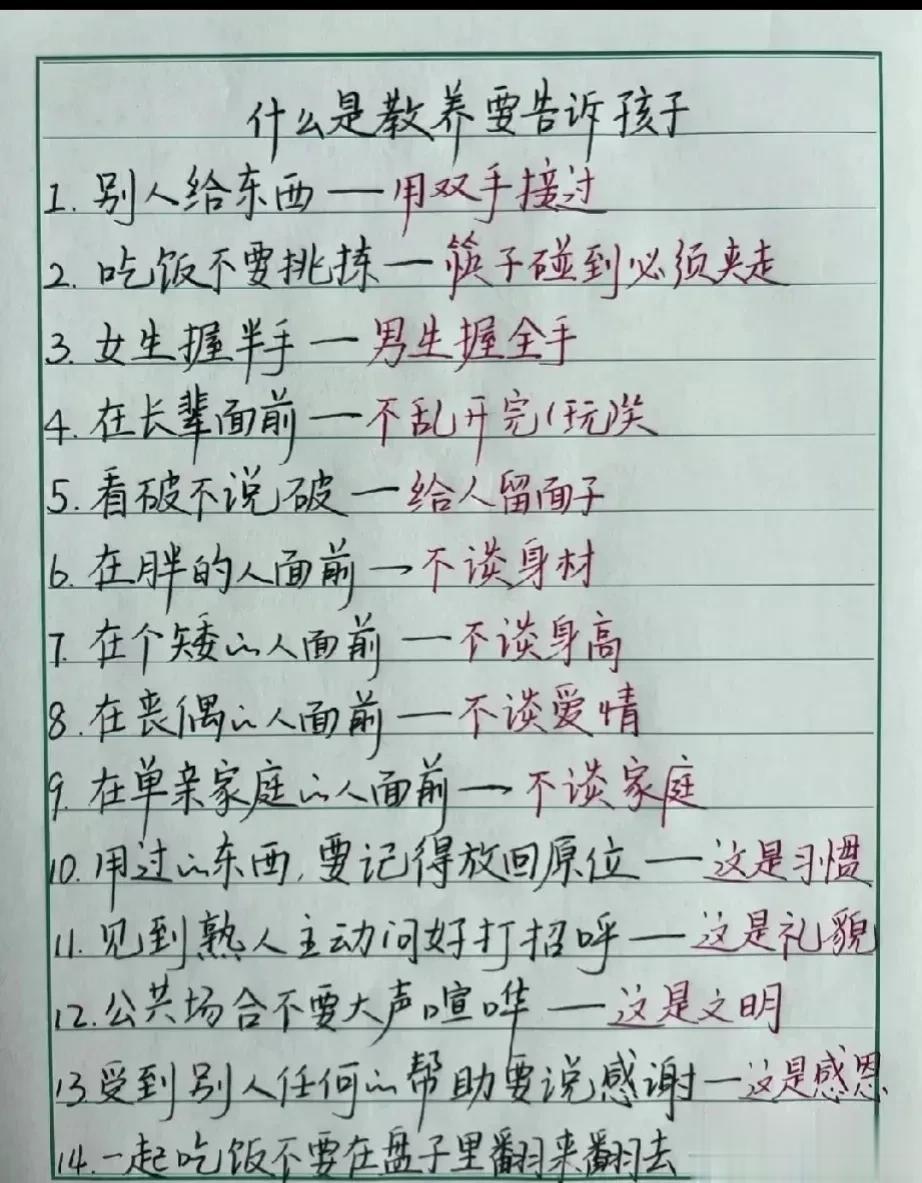 什么是教养要告诉孩子
1. 别人给东西一用双手接过
2. 吃饭不要挑拣一筷子碰到必须夹走
3. 女生握半手一男生握全手
4. 在长辈面前一不乱开完(玩)笑
5. 看破不说破一给人留面子
6. 在胖的人面前一不谈身材
7. 在个矮的人面前一不谈身高
8. 在丧偶的人面前一不谈爱情
9. 在单亲家庭的人面前一不谈家庭
10. 用过的东西,要记得放回原位一这是习惯
11. 见到熟人主动问好打招呼一这是礼貌
12. 公共场合不要大声喧哗一这是文明
13. 受到别人任何的帮助要说感谢一这是感恩
14. 一起吃饭不要在盘子里翻来翻去